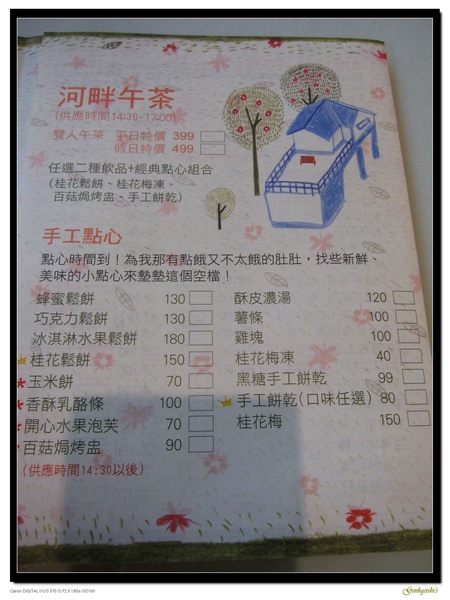 河畔午茶
(供應時間14:30-17:00)
雙人午茶 平日特價 399
假日特價 499
任選二種飲品+經典點心組合
(桂花鬆餅、桂花梅凍、
百菇焗烤盅、手工餅乾)
手工點心
點心時間到！為我那有點餓又不太餓的肚肚，找些新鮮、
美味的小點心來墊墊這個空檔！
蜂蜜鬆餅 130
巧克力鬆餅 130
冰淇淋水果鬆餅 180
桂花鬆餅 150
玉米餅 70
香酥乳酪條 100
開心水果泡芙 70
百菇焗烤盅 90
(供應時間14:30以後)
酥皮濃湯 120
薯條 100
雞塊 100
桂花梅凍 40
黑糖手工餅乾 99
手工餅乾(口味任選) 80
桂花梅 150
Ginkgoshi's